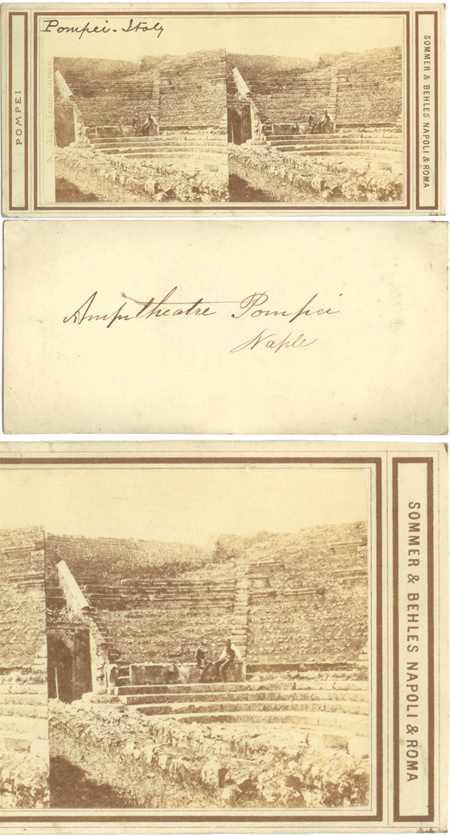 Pompei - Italy
POMPEI
SOMMER & BEHLES NAPOLI & ROMA
Ampitheatre Pompei
Naples
SOMMER & BEHLES NAPOLI & ROMA